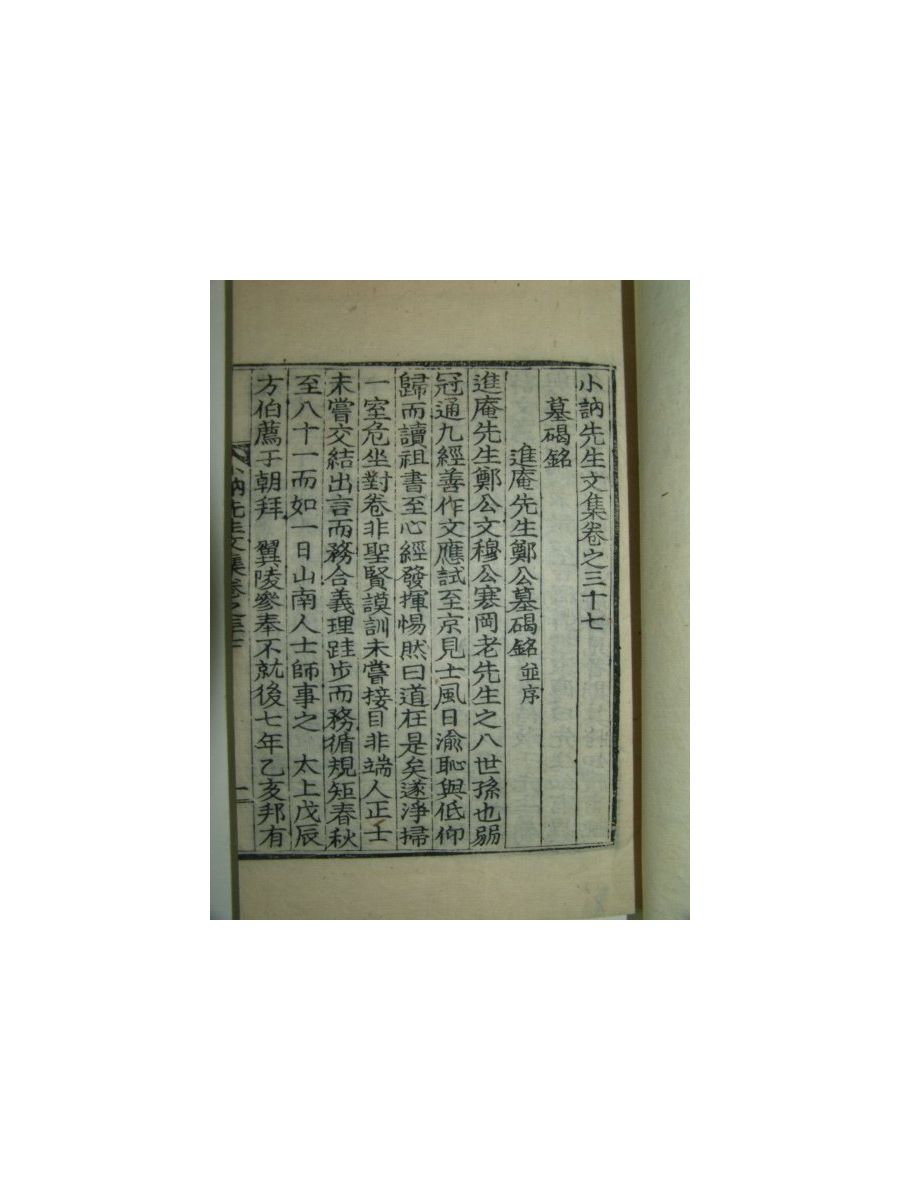 小訥先生文集卷之三十七
墓碣銘
進庵先生鄭公墓碣銘並序
進庵先生鄭公文穆公寒岡老先生之八世孫也弱
冠通九經善作文應試至京見士風日渝恥與低仰
歸而讀祖書至心經發揮惕然曰道在是矣遂淨掃
一室危坐對卷非聖賢謨訓未嘗接目非端人正士
未嘗交結出言而務合義理跬步而務循規矩春秋
至八十一而如一日山南人士師事之 太上戊辰
方伯薦于朝拜 翼陵參奉不就後七年乙亥邦有
小訥先生文集卷之三十七 一